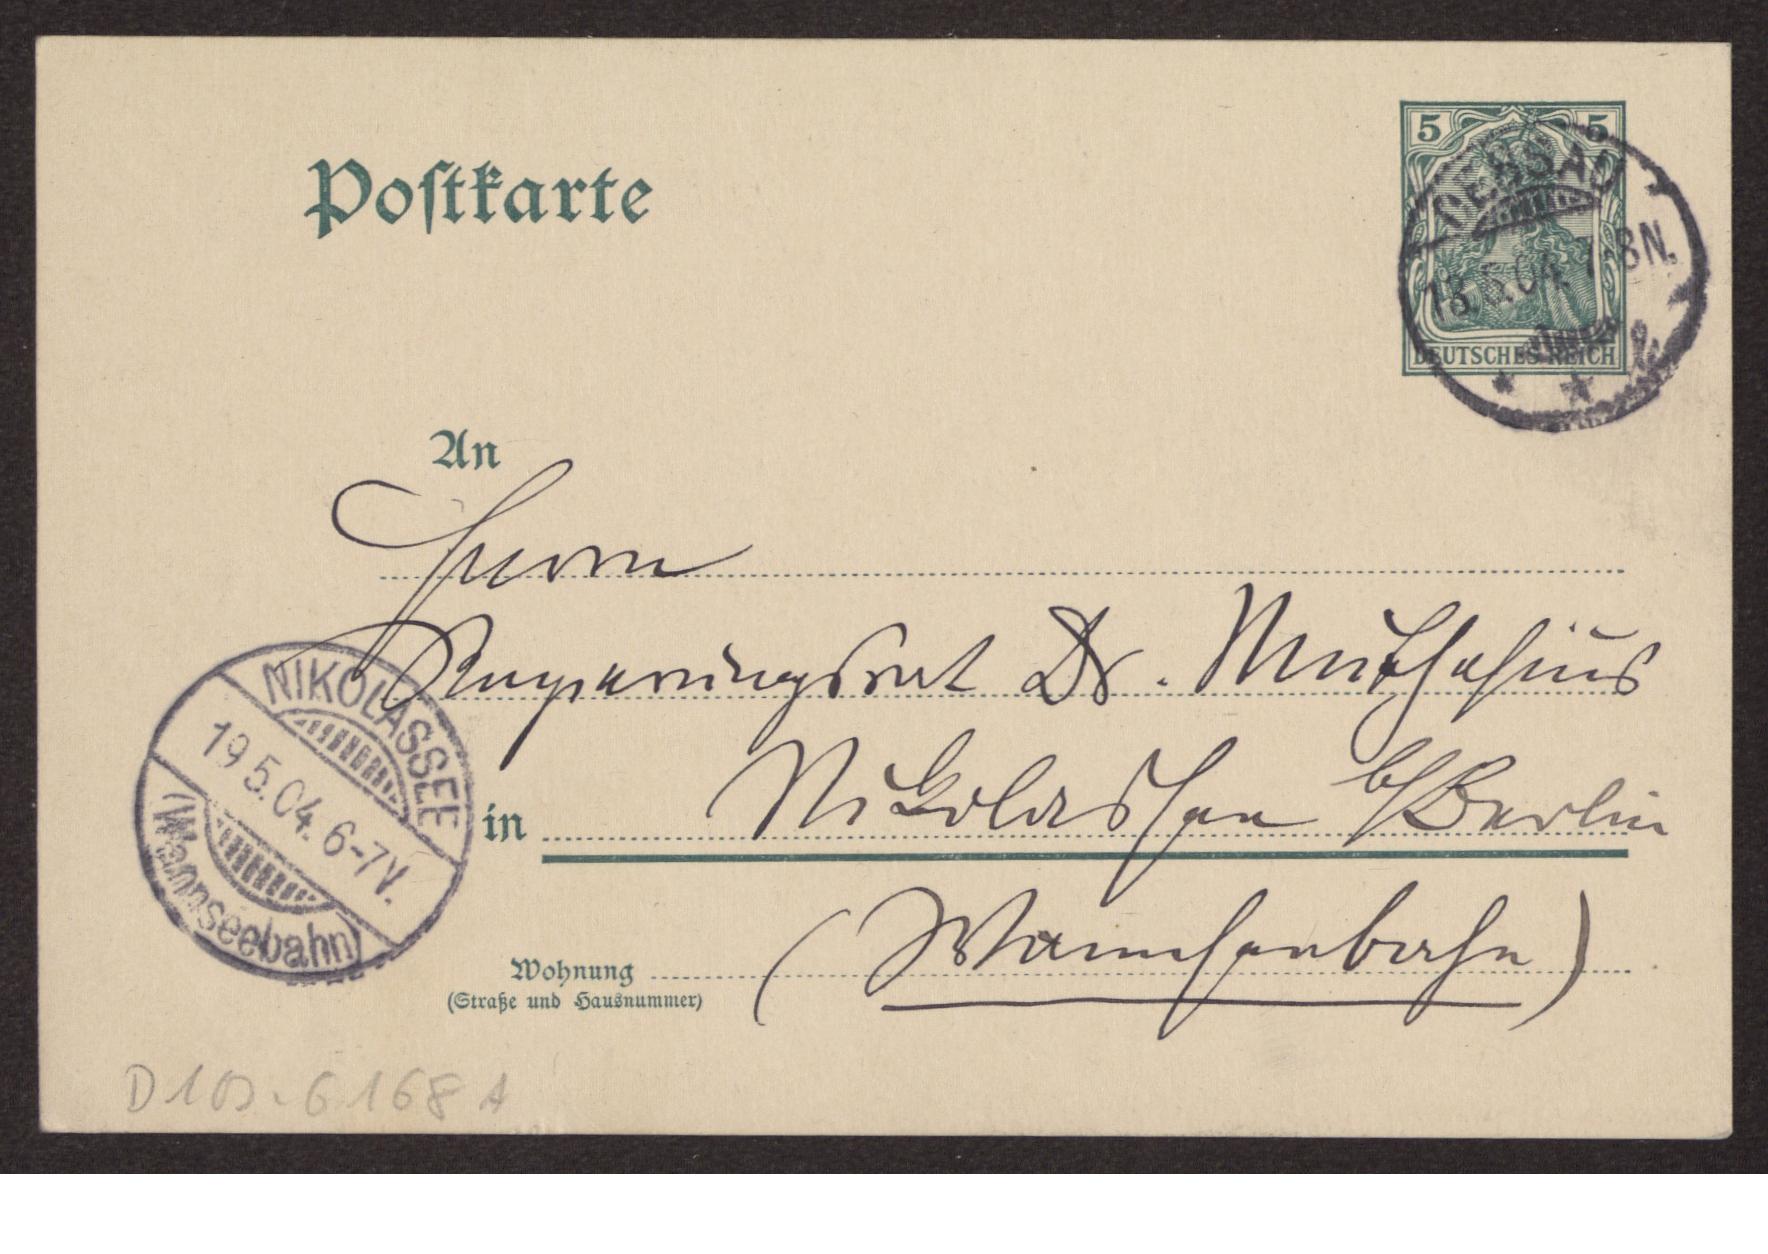 Postkarte
5 5
DESSAU
18.5.04. 7-8N.
DEUTSCHES REICH
An
Herrn
Regierungsrat Dr. Muthesius
NIKOLASSEE
19 5.04. 6-7V.
(Wannseebahn)
in Nikolassee b/Berlin
(Wannseebahn)
Wohnung
(Straße und Hausnummer)
D 103-6168 A